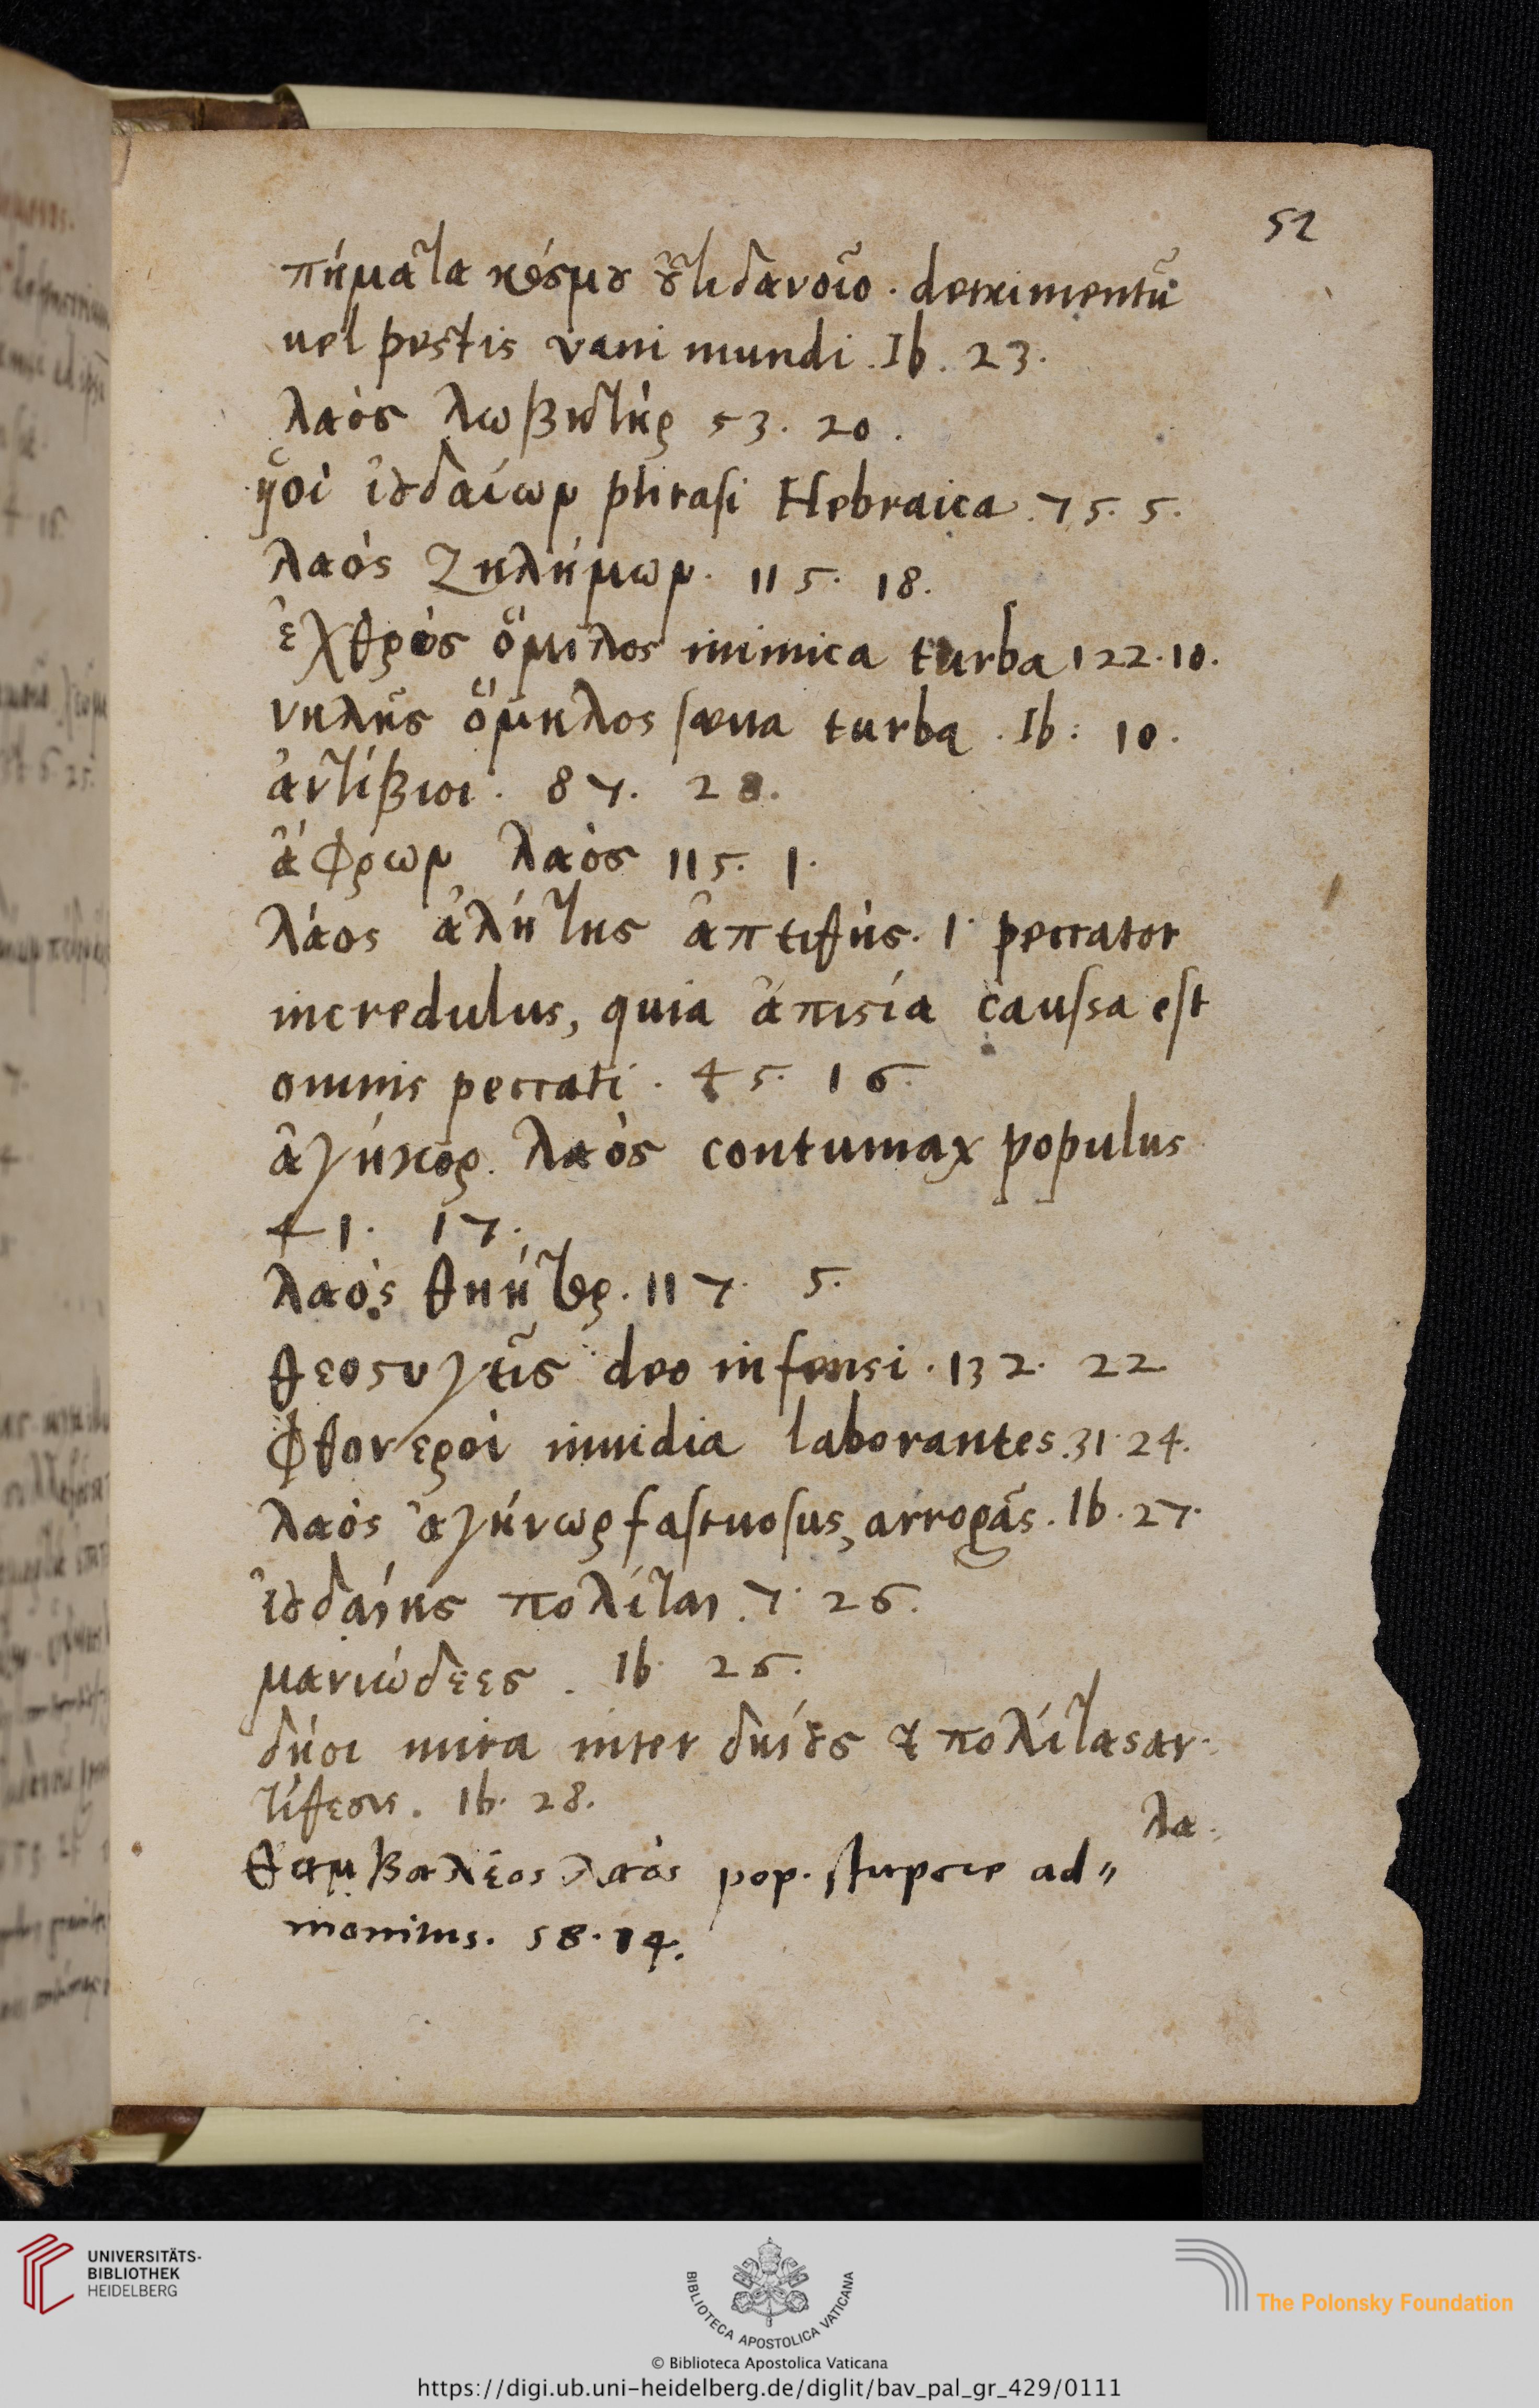 52
πήματα κόσμου οὐτιδανοῖο. detrimentū
uel pestis vani mundi. Ib. 23.
λαὸς λωβητὴρ 53. 20.
ἰουδαίων phrasi Hebraica. 75. 5.
λαὸς ζηλήμων. 115. 18.
ἐχθρὸς ὅμιλος inimica turba 122. 10.
νηλὴς ὅμηλος sæua turba. Ib: 10.
ἀντίβιοι. 87. 28.
ἄφρων λαὸς 115. 1.
λάος ἀλήτης ἀπειθής. i. peccator
incredulus, quia ἀπιστία caussa est
omnis peccati. 45. 16.
λαὸς contumax populus
41. 17.
λαὸς 117. 5.
θεοστυγεῖς deo infensi. 132. 22
φθονεροὶ inuidia laborantes. 31. 24.
λαὸς ἀγήνωρ fastuosus, arrogās. Ib. 27.
ἰουδαίης πολίται. 7. 26.
μανιώδεες. Ib. 26.
δήοι mira inter δηίους & πολίτας ἀν-
τίθεσις. Ib. 28.
λα.
θαμβαλέος λαὸς pop. stupore ad〃
monitus. 58. 14.
UNIVERSITÄTS-
BIBLIOTHEK
HEIDELBERG
BIBLIOTECA APOSTOLICA VATICANA
The Polonsky Foundation
© Biblioteca Apostolica Vaticana
https://digi.ub.uni-heidelberg.de/diglit/bav_pal_gr_429/0111